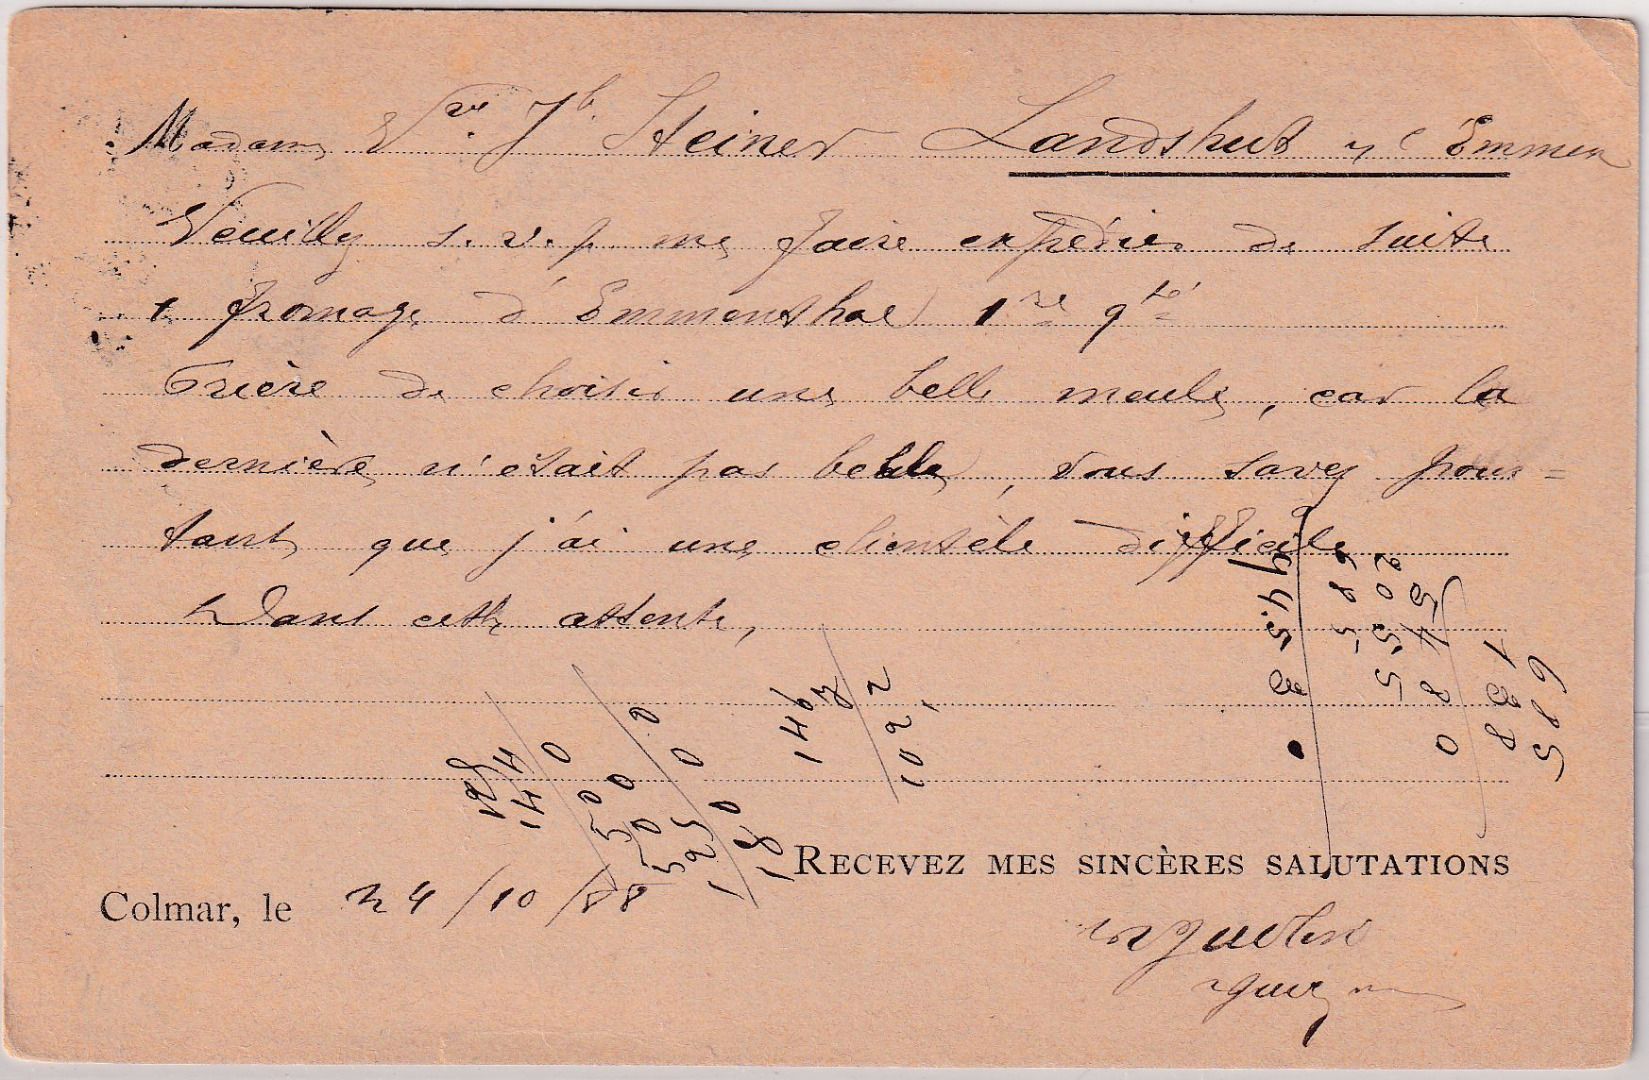 Madame Vve Jb Steiner Landshut Emmen
Veuillez s. v. p. me faire expédier de suite
1 fromage d'Emmenthal 1re qté
Prière de choisir une belle meule, car la
dernière n'était pas belle, vous savez pour=
tant que j'ai une clientèle difficile
Dans cette attente,
RECEVEZ MES SINCÈRES SALUTATIONS
Colmar, le 24/10/88
685
188
5480
2055
685
146
7
1022
144